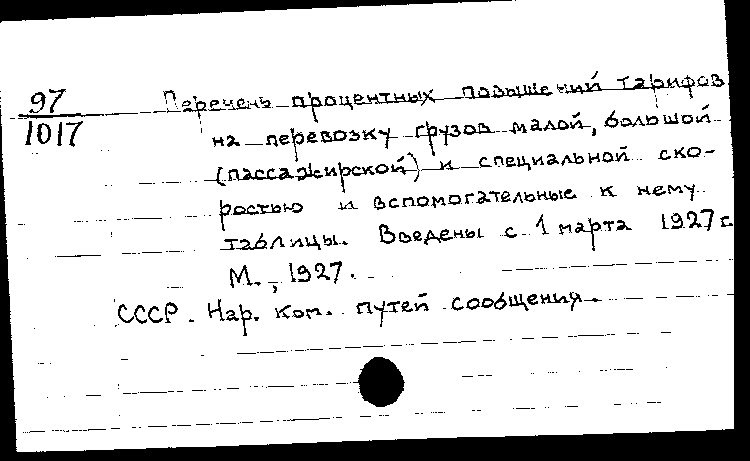 97
1017
Перечень процентных повышений тарифов
на перевозку грузов малой, большой
(пассажирской) и специальной ско-
ростью и вспомогательные к нему
таблицы. Введены с 1 марта 1927 г.
М., 1927.
СССР. Нар. ком. путей сообщения.